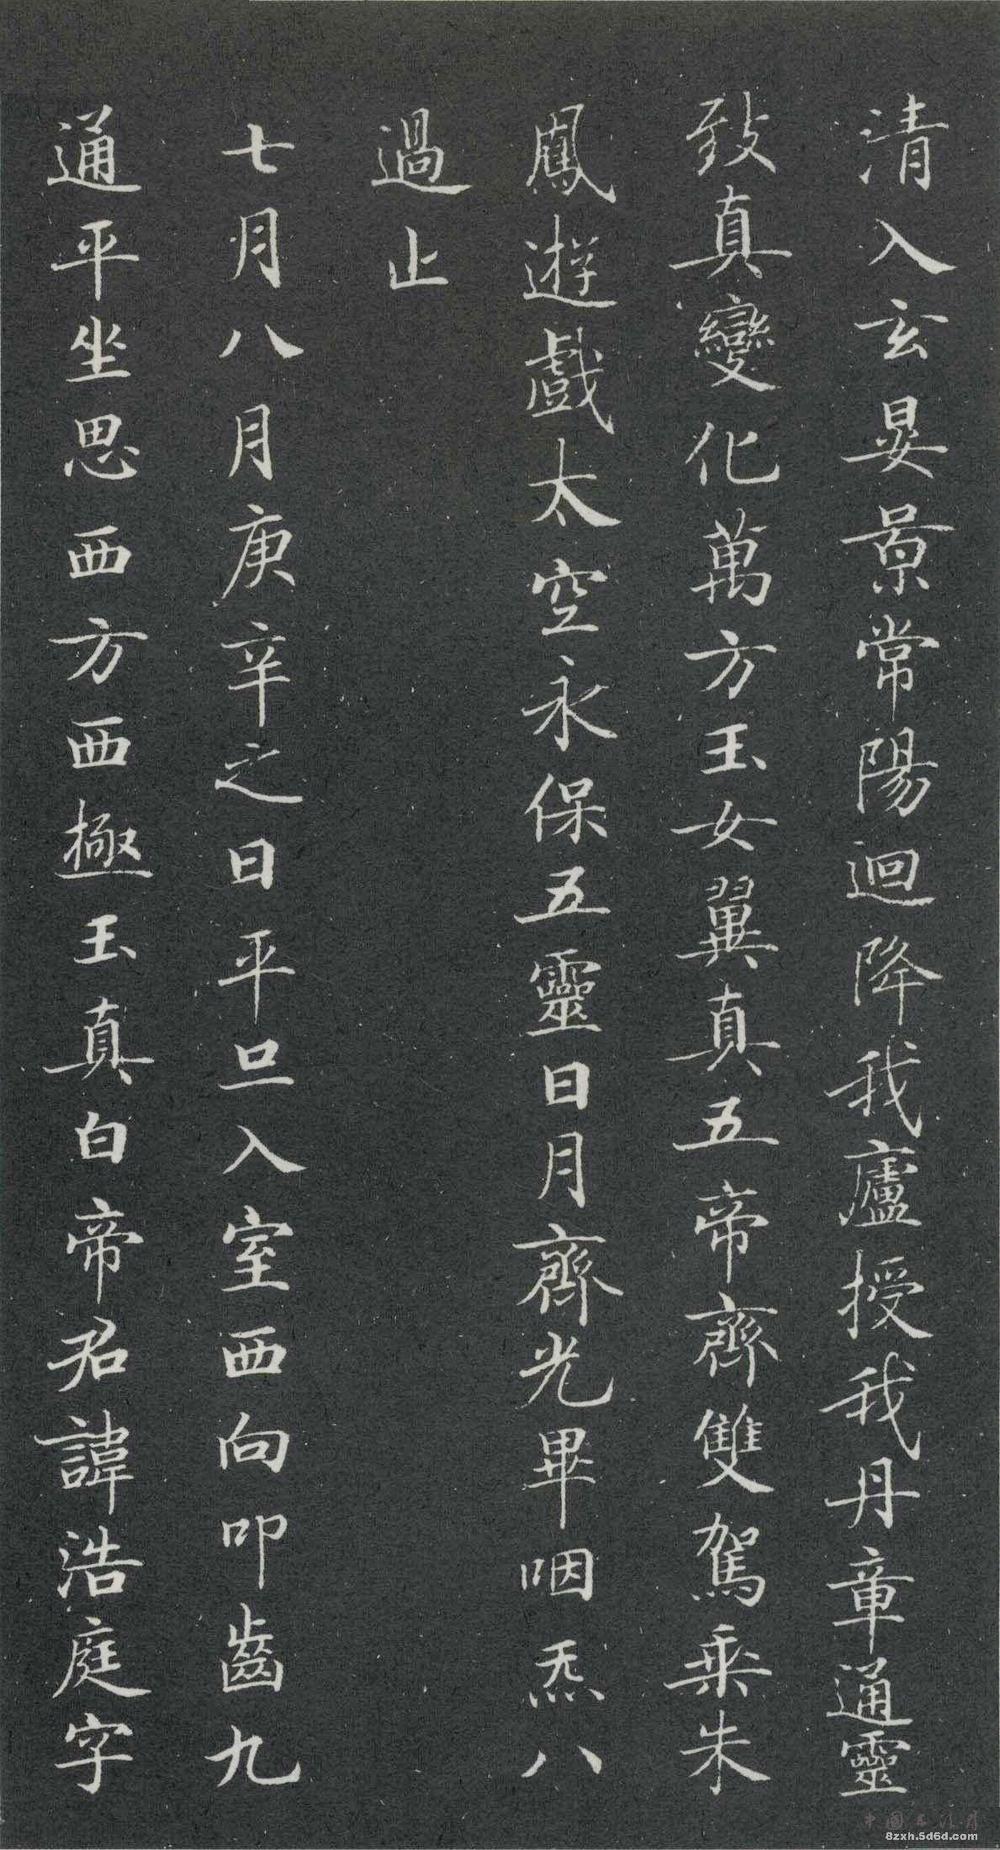 清入玄晏景常陽迴降我廬授我丹章通靈
致真變化萬方玉女翼真五帝齊雙駕乘朱
鳳遊戲太空永保五靈日月齊光畢咽炁八
過止
七月八月庚辛之日平旦入室西向叩齒九
通平坐思西方西極玉真白帝君諱浩庭字
8zxh.5d6d.com